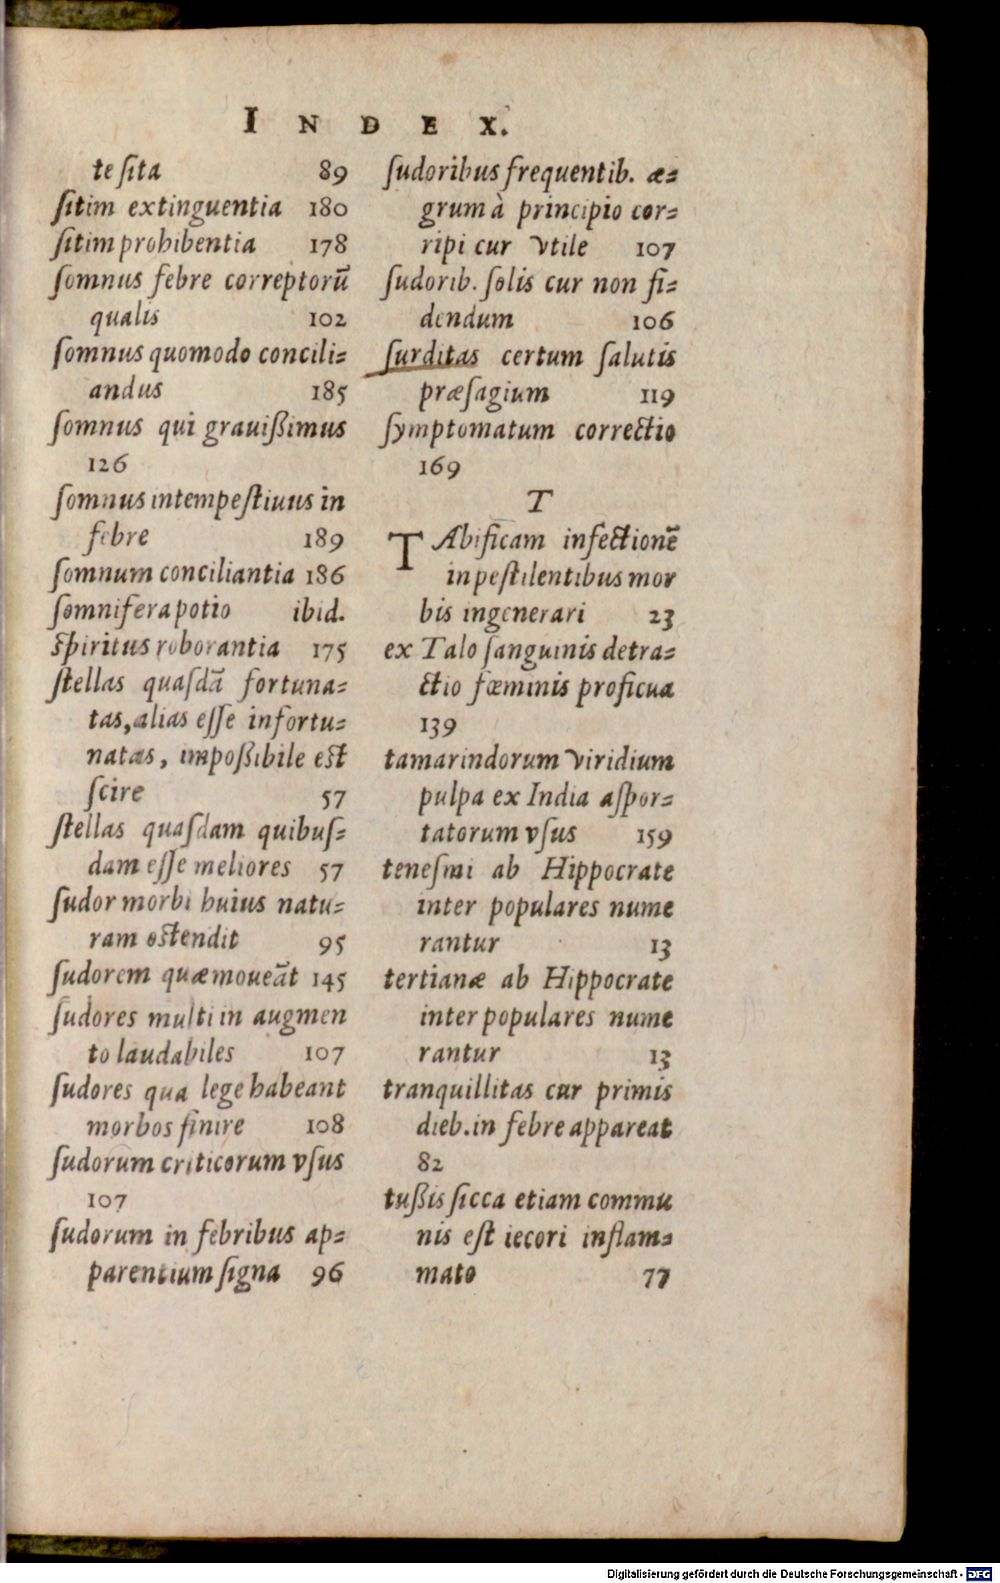 INDEX.
te ſita 89
ſitim extinguentia 180
ſitim prohibentia 178
ſomnus febre correptorū
qualis 102
ſomnus quomodo concili-
andus 185
ſomnus qui grauißimus
126
ſomnus intempeſtiuus in
febre 189
ſomnum conciliantia 186
ſomnifera potio ibid.
ſpiritus roborantia 175
ſtellas quaſdā fortuna-
tas, alias eſſe infortu-
natas, impoßibile eſt
ſcire 57
ſtellas quaſdam quibuſ-
dam eſſe meliores 57
ſudor morbi huius natu-
ram oſtendit 95
ſudorem quæ moueāt 145
ſudores multi in augmen
to laudabiles 107
ſudores qua lege habeant
morbos finire 108
ſudorum criticorum vſus
107
ſudorum in febribus ap-
parentium ſigna 96
ſudoribus frequentib. æ-
grum à principio cor-
ripi cur vtile 107
ſudorib. ſolis cur non fi-
dendum 106
ſurditas certum ſalutis
præſagium 119
ſymptomatum correctio
169
T
TAbificam infectionē
in peſtilentibus mor
bis ingenerari 23
ex Talo ſanguinis detra-
ctio fœminis proficua
139
tamarindorum viridium
pulpa ex India aſpor-
tatorum vſus 159
teneſmi ab Hippocrate
inter populares nume
rantur 13
tertianæ ab Hippocrate
inter populares nume
rantur 13
tranquillitas cur primis
dieb. in febre appareat
82
tußis ſicca etiam commu
nis eſt iecori inflam-
mato 77
Digitalisierung gefördert durch die Deutsche Forschungsgemeinschaft - DFG